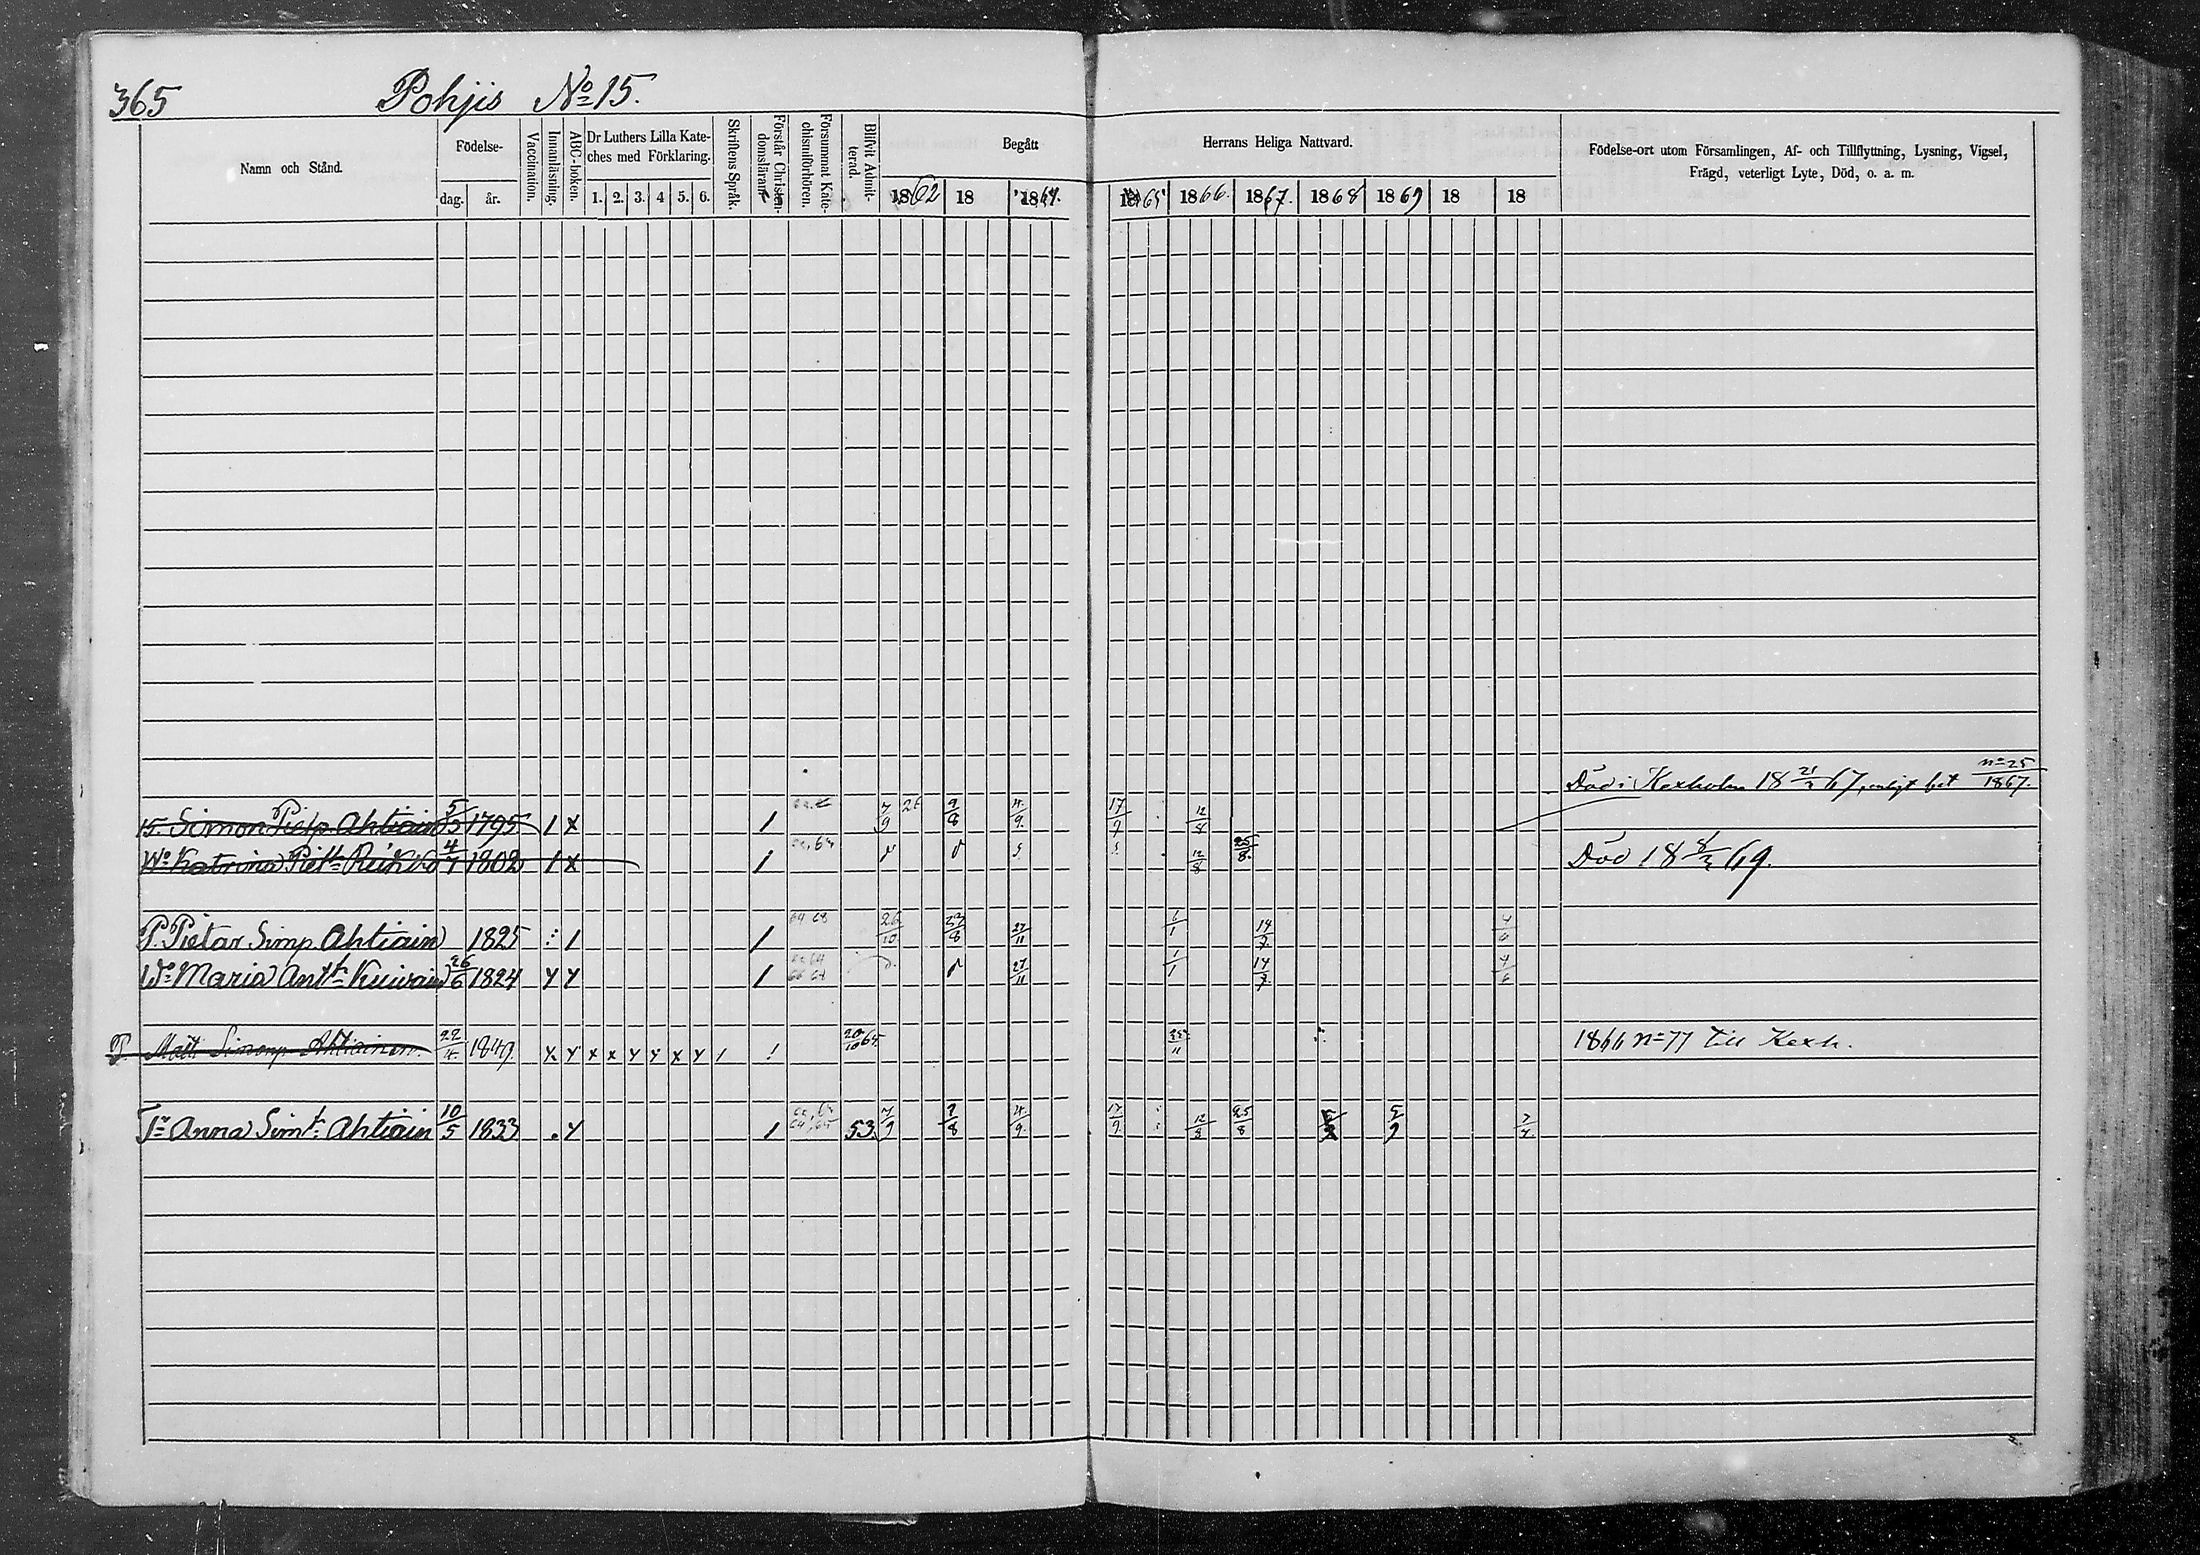 365 Pohjis No 15.
Namn och Stånd.
Födelse-
dag. år.
Vaccination.
Innanläsning.
ABC-boken.
Dr Luthers Lilla Kate-
ches med Förklaring.
1. 2. 3. 4 5. 6.
Skriftens Språk.
Förstår Christen-
domsläran.
Försummat Kate-
chismiförhören.
Blifvit Admit-
terad.
Begått Herrans Heliga Nattvard.
1862 18 1864. 1865 1866. 1867. 1868 1869 18 18
Födelse-ort utom Församlingen, Af- och Tillflyttning, Lysning, Vigsel,
Frägd, veterligt Lyte, Död, o. a. m.
Död i Kexholm 18 21/3 67, enligt bet no 25/1867.
15. Simon Pietp. Ahtiain 5/5 1795 1 x 1 7/9 26 9/8 4/9 17/9 12/8
Wo Katrina Piett. 4/7 1802 1 x 1 12/8 25/8. Död 18 8/3 69.
P. Pietar Simp. Ahtiain 1825 1 1 64 68 26/10 23/8 27/11 1/1 14/7 4/6
Wo Maria Antt. Kuivain 26/6 1824 y y 1 27/11 1/1 14/7 4/6
P. Matti Simonp. Ahtiainen. 22/4 1849 x y x x y y x y 1 20/10 65 1866 no 77 till Kexh.
Tr Anna Simt. Ahtiain 10/5 1833 . y 1 53. 7/9 9/8 4/9 17/9 12/8 25/8 5/9 2/4